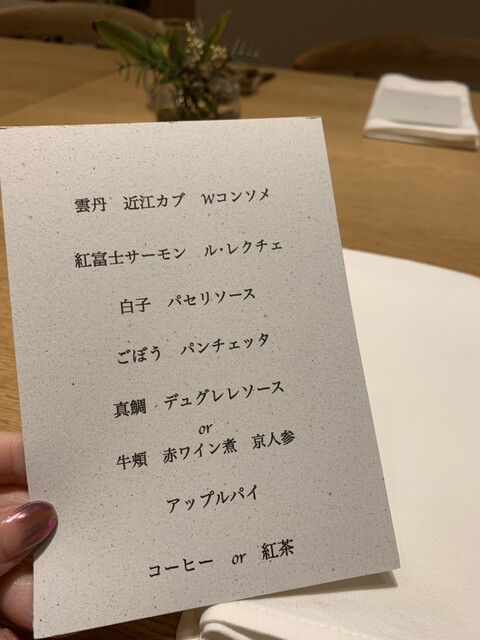 雲丹　近江カブ　Wコンソメ
紅富士サーモン　ル・レクチェ
白子　パセリソース
ごぼう　パンチェッタ
真鯛　デュグレレソース
or
牛頬　赤ワイン煮　京人参
アップルパイ
コーヒー　or　紅茶